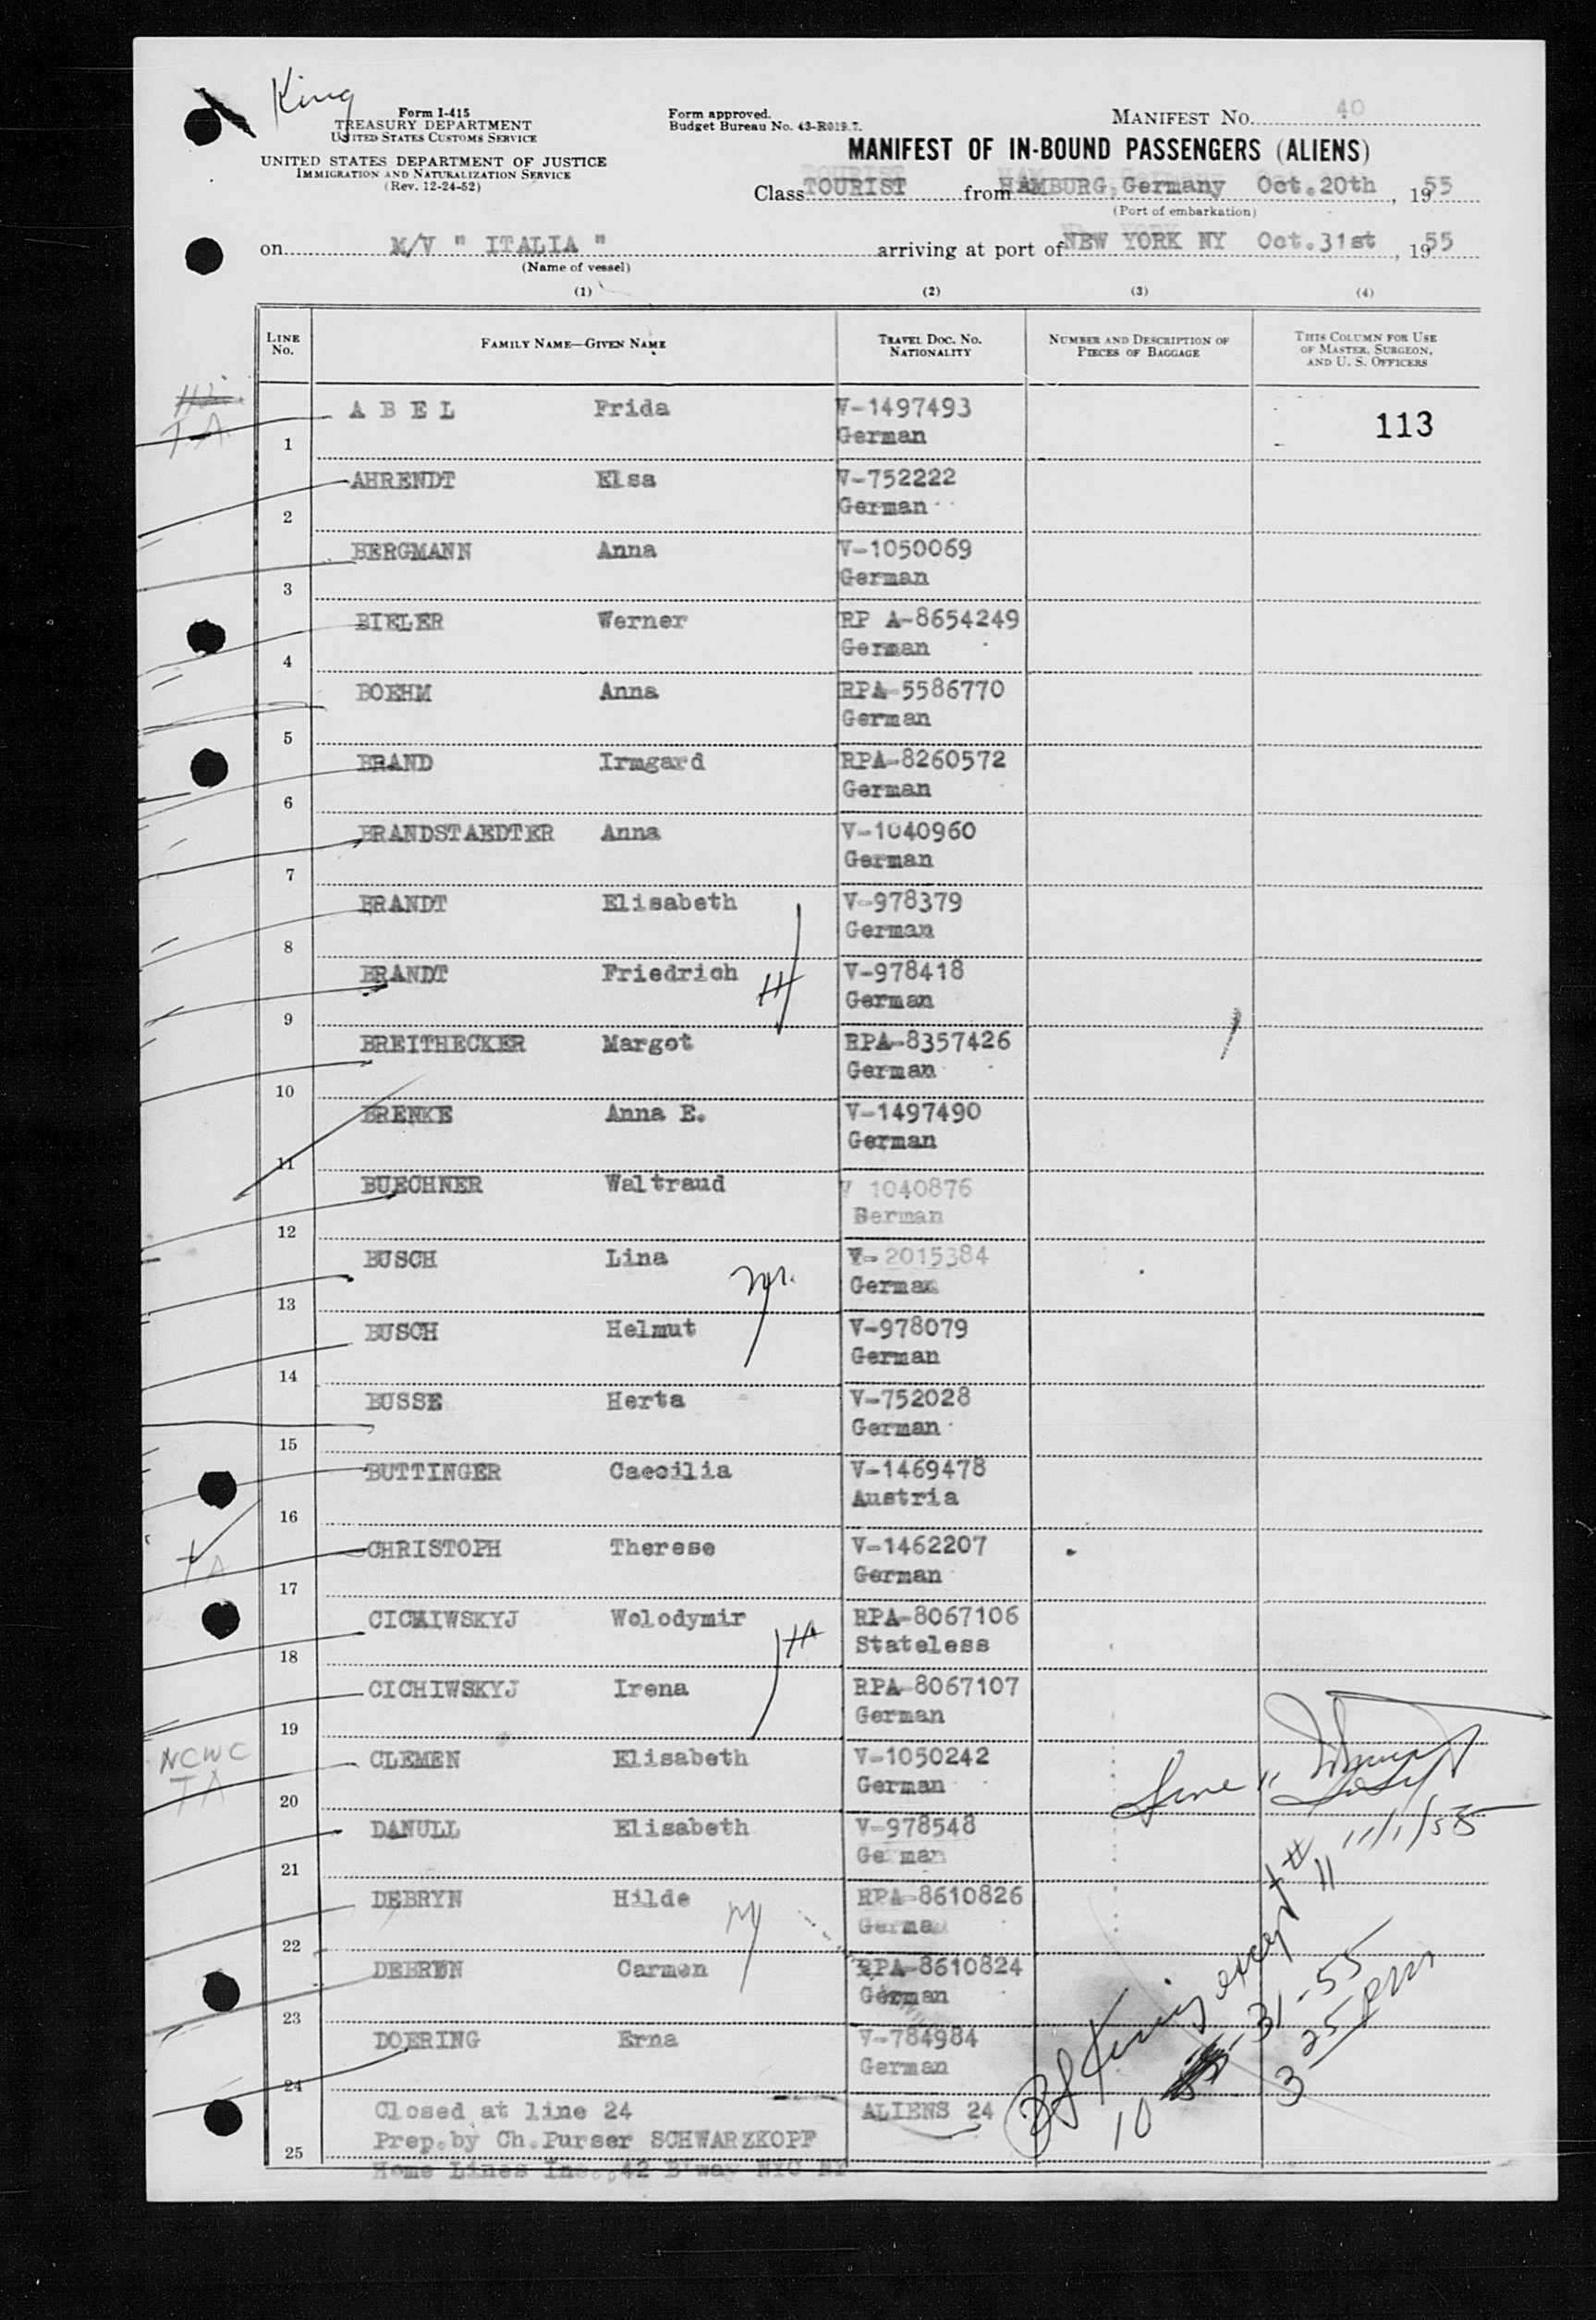 King
Form I-415
TREASURY DEPARTMENT
UNITED STATES CUSTOMS SERVICE
UNITED STATES DEPARTMENT OF JUSTICE
IMMIGRATION AND NATURALIZATION SERVICE
(Rev. 12-24-52)
Form approved.
Budget Bureau No. 43-R019.7.
MANIFEST NO. 40
MANIFEST OF IN-BOUND PASSENGERS (ALIENS)
Class TOURIST from HAMBURG, Germany Oct. 20th, 1955
(Port of embarkation)
on M/V " ITALIA " arriving at port of NEW YORK NY Oct. 31st, 1955
(Name of vessel)
(1) (2) (3) (4)
LINE NO. FAMILY NAME—GIVEN NAME TRAVEL DOC. NO. NATIONALITY NUMBER AND DESCRIPTION OF PIECES OF BAGGAGE THIS COLUMN FOR USE OF MASTER, SURGEON, AND U. S. OFFICERS
TA
1 A B E L Frida V-1497493 German 113
2 AHRENDT Elsa V-752222 German
3 BERGMANN Anna V-1050069 German
4 BIELER Werner RP A-8654249 German
5 BOEHM Anna RPA-5586770 German
6 BRAND Irmgard RPA-8260572 German
7 BRANDSTAEDTER Anna V-1040960 German
8 BRANDT Elisabeth V-978379 German
9 BRANDT Friedrich V-978418 German
10 BREITHECKER Margot RPA-8357426 German
11 BRENKE Anna E. V-1497490 German
12 BUECHNER Waltraud V 1040876 German
13 BUSCH Lina V-2015384 German
14 BUSCH Helmut V-978079 German
15 BUSSE Herta V-752028 German
16 BUTTINGER Caecilia V-1469478 Austria
TA
17 CHRISTOPH Therese V-1462207 German
18 CICHIWSKYJ Wolodymir RPA-8067106 Stateless
19 CICHIWSKYJ Irena RPA-8067107 German
NCWC
TA
20 CLEMEN Elisabeth V-1050242 German
21 DANULL Elisabeth V-978548 Ge man
11/1/55
22 DEBRYN Hilde RPA-8610826 German
23 DEBRYN Carmen RPA-8610824 German
24 DOERING Erna V-784984 German
King except # 11
10-31-55
3 25 PM
25 Closed at line 24 ALIENS 24
Prep.by Ch.Purser SCHWARZKOPF
Home Lines Inc.,42 B'way NYC NY